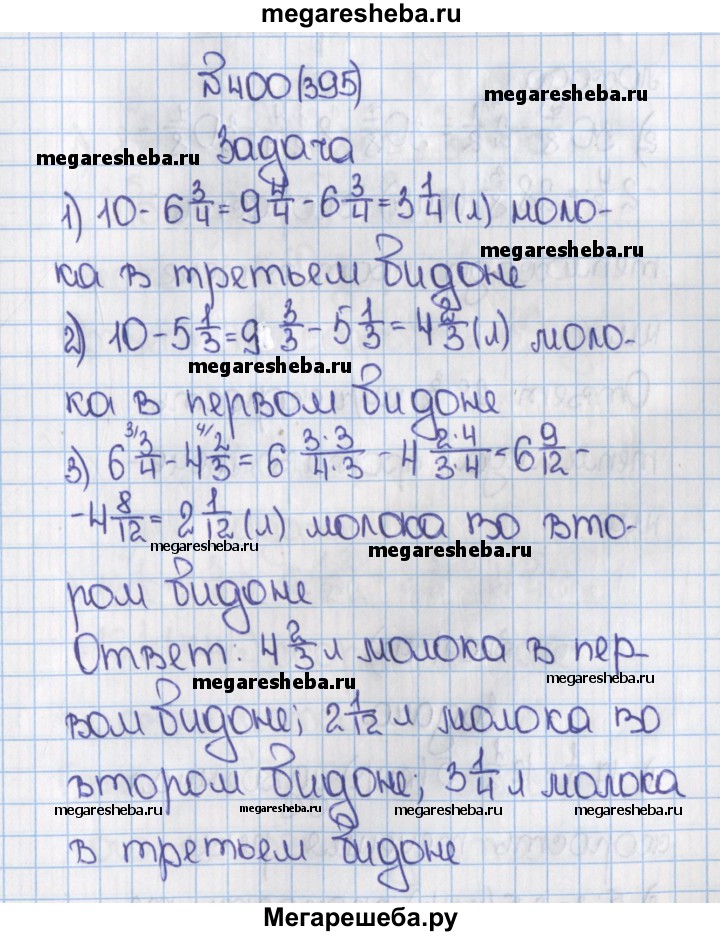 megaresheba.ru
№400(395)
megaresheba.ru
Задача
megaresheba.ru
1) 10 - 6 3/4 = 9 4/4 - 6 3/4 = 3 1/4 (л) моло-
megaresheba.ru
ка в третьем бидоне
2) 10 - 5 1/3 = 9 3/3 - 5 1/3 = 4 2/3 (л) моло-
megaresheba.ru
ка в первом бидоне
3) 6 3/4 - 4 2/3 = 6 3·3/4·3 - 4 2·4/3·4 = 6 9/12 -
- 4 8/12 = 2 1/12 (л) молока во вто-
megaresheba.ru megaresheba.ru
ром бидоне
Ответ: 4 2/3 л молока в пер-
megaresheba.ru megaresheba.ru
вом бидоне; 2 1/12 л молока во
втором бидоне; 3 1/4 л молока
megaresheba.ru megaresheba.ru megaresheba.ru megaresheba.ru
в третьем бидоне
Мегарешеба.ру